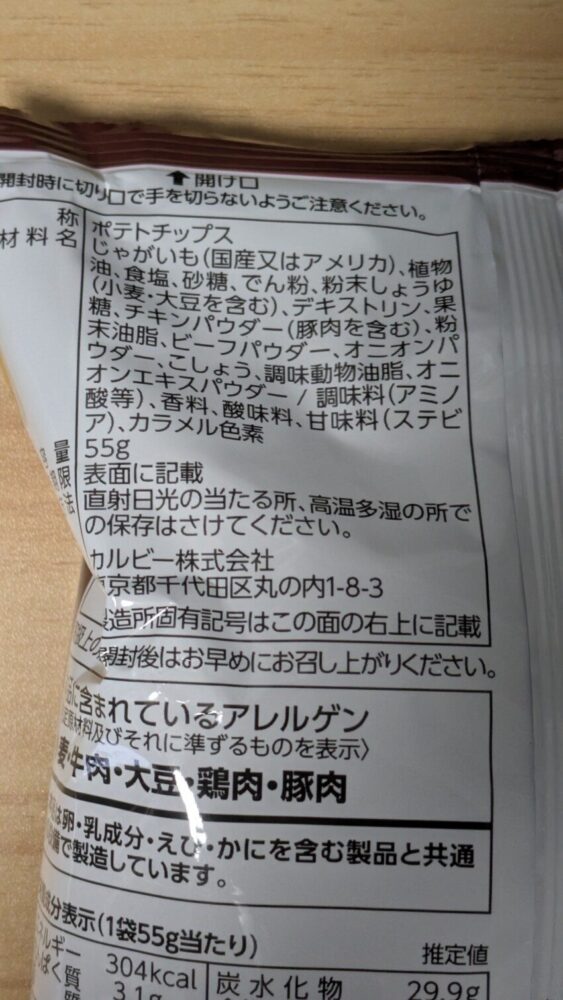 ⬆開け口
開封時に切り口で手を切らないようご注意ください。
称 ポテトチップス
材料名 じゃがいも(国産又はアメリカ)、植物
油、食塩、砂糖、でん粉、粉末しょうゆ
(小麦・大豆を含む)、デキストリン、果
糖、チキンパウダー(豚肉を含む)、粉
末油脂、ビーフパウダー、オニオンパ
ウダー、こしょう、調味動物油脂、オニ
オンエキスパウダー / 調味料(アミノ
酸等)、香料、酸味料、甘味料(ステビ
ア)、カラメル色素
量 55g
限 表面に記載
法 直射日光の当たる所、高温多湿の所で
の保存はさけてください。
カルビー株式会社
京都千代田区丸の内1-8-3
造所固有記号はこの面の右上に記載
開封後はお早めにお召し上がりください。
に含まれているアレルゲン
原材料及びそれに準ずるものを表示〉
麦・牛肉・大豆・鶏肉・豚肉
は卵・乳成分・えび・かにを含む製品と共通
で製造しています。
成分表示(1袋55g当たり) 推定値
ネルギー 304kcal 炭水化物 29.9g
ぱく質 3.1g
質